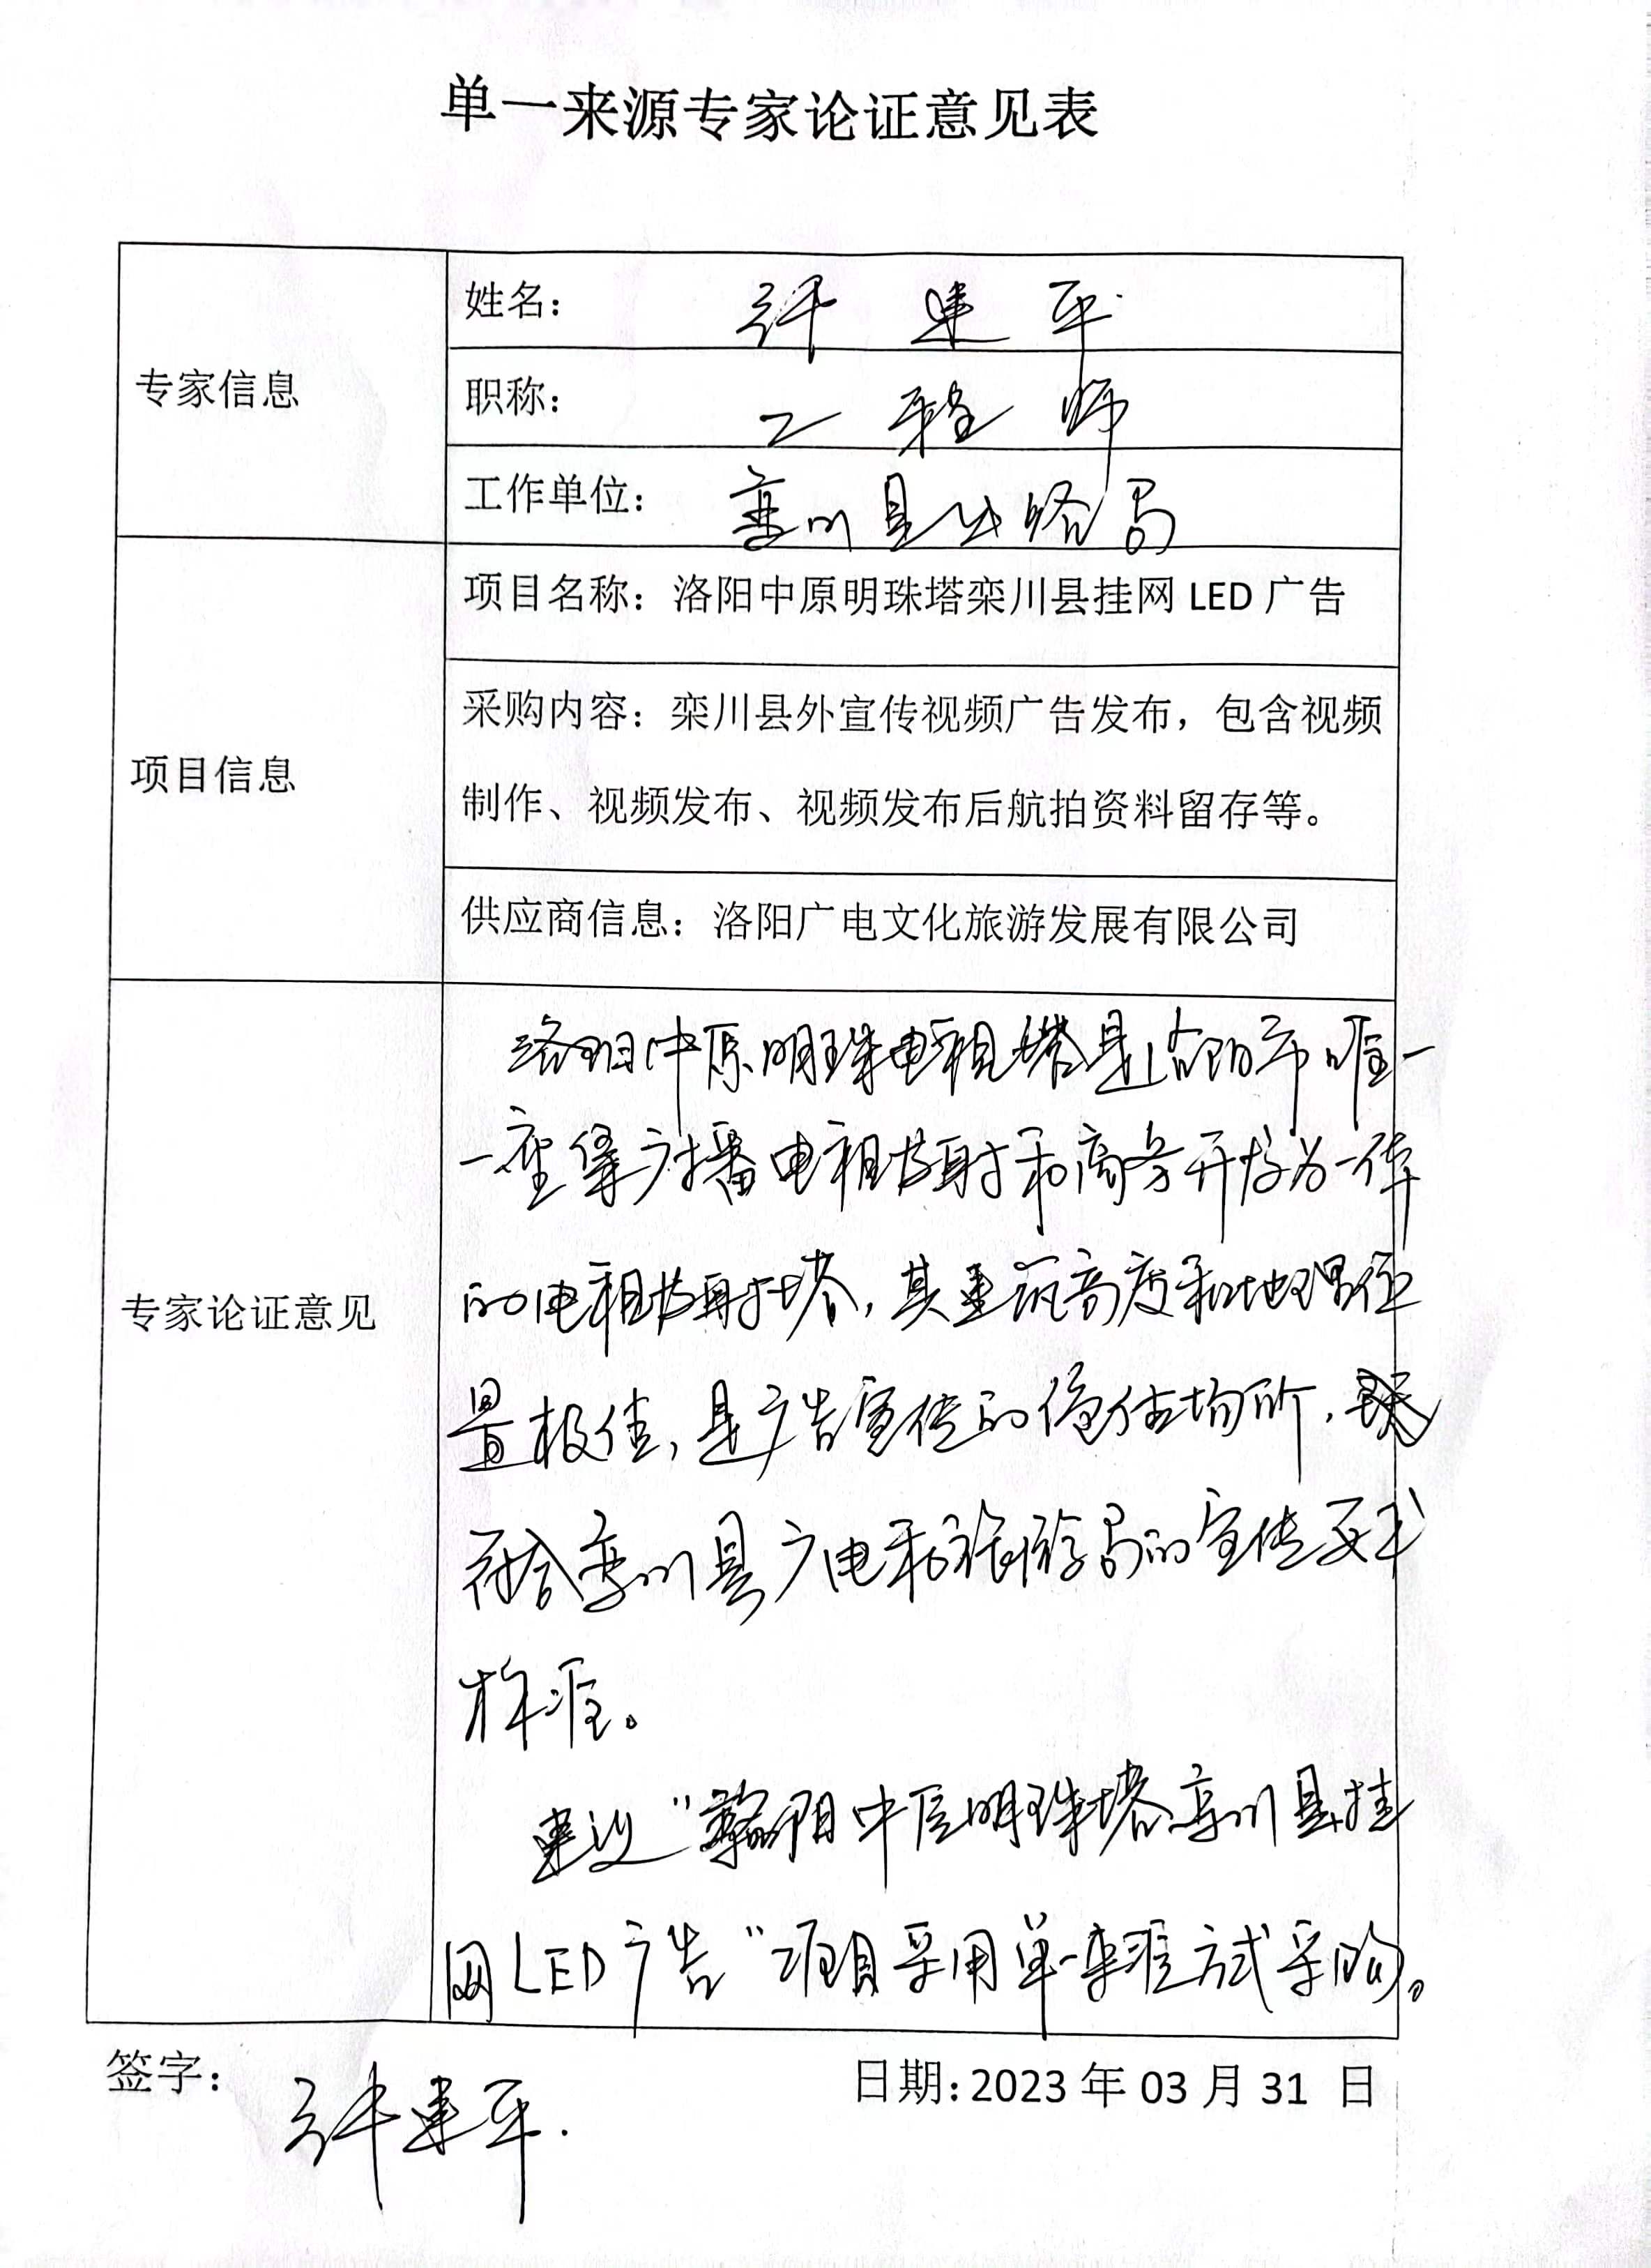 单一来源专家论证意见表
专家信息
姓名：许建平
职称：工程师
工作单位：栾川县公路局
项目信息
项目名称：洛阳中原明珠塔栾川县挂网 LED 广告
采购内容：栾川县外宣传视频广告发布，包含视频
制作、视频发布、视频发布后航拍资料留存等。
供应商信息：洛阳广电文化旅游发展有限公司
专家论证意见
洛阳中原明珠电视塔是洛阳市唯一
一座集广播电视发射和商务开发为一体
的电视发射塔，其建筑高度和地理位
置极佳，是广告宣传的绝佳场所，
符合栾川县广电和旅游局的宣传要求
标准。
建议“洛阳中原明珠塔栾川县挂
网LED广告”项目采用单一来源方式采购。
签字：许建平.
日期：2023 年 03 月 31 日